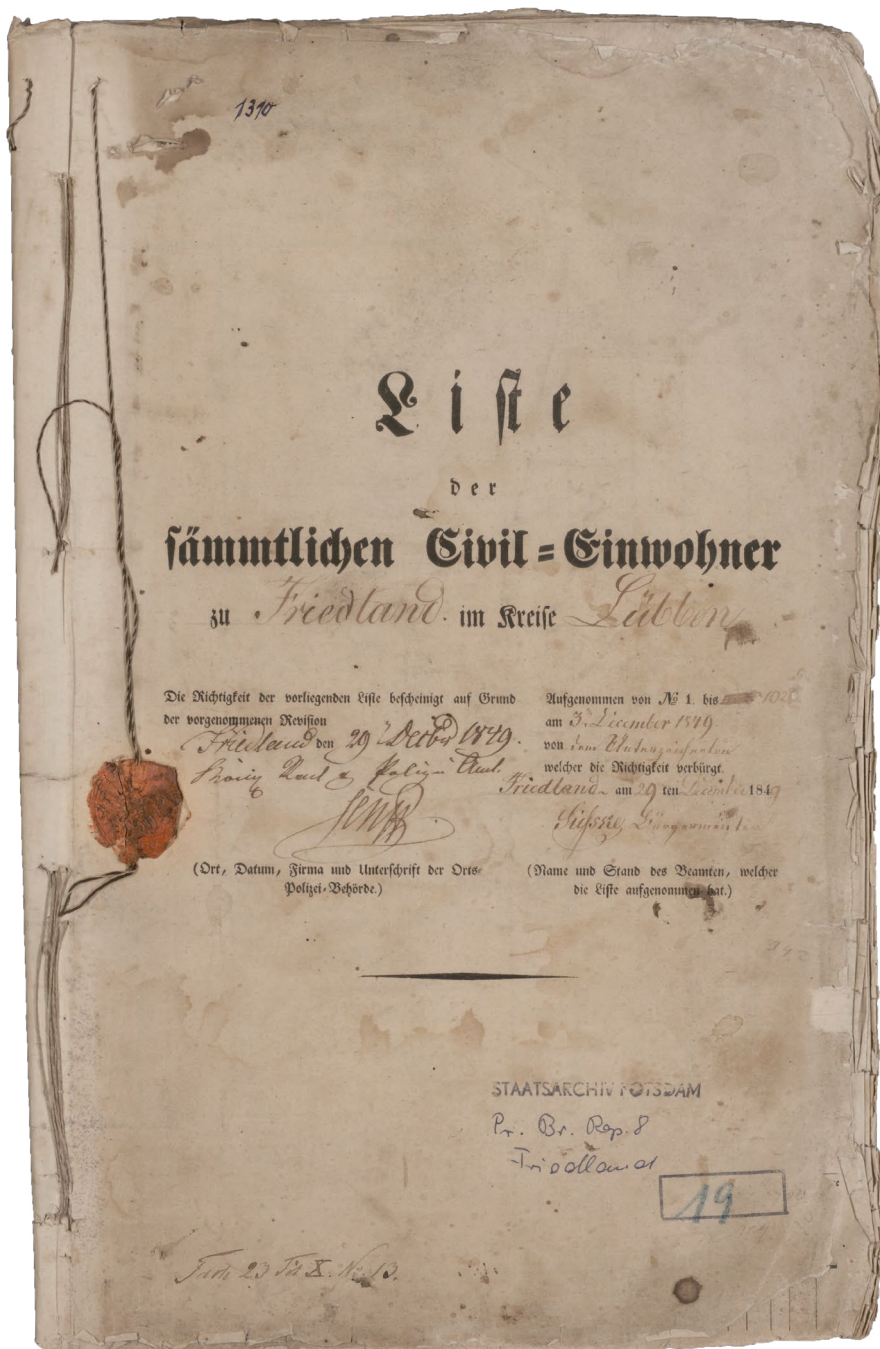 1310
Liste
der
sämmtlichen Civil-Einwohner
zu Friedland im Kreise Lübben
Die Richtigkeit der vorliegenden Liste bescheinigt auf Grund
der vorgenommenen Revision
Friedland den 29 Decbr 1849.
König Rent & Polizei Amt.
(Ort, Datum, Firma und Unterschrift der Orts-
Polizei-Behörde.)
Aufgenommen von № 1. bis
am 3. December 1849.
von dem Unterzeichneten
welcher die Richtigkeit verbürgt.
Friedland am 29 ten December 1849
Bürgermeister
(Name und Stand des Beamten, welcher
die Liste aufgenommen hat.)
STAATSARCHIV POTSDAM
Pr. Br. Rep. 8
Friedland
19
Fach 23 Tit X. No. 13.